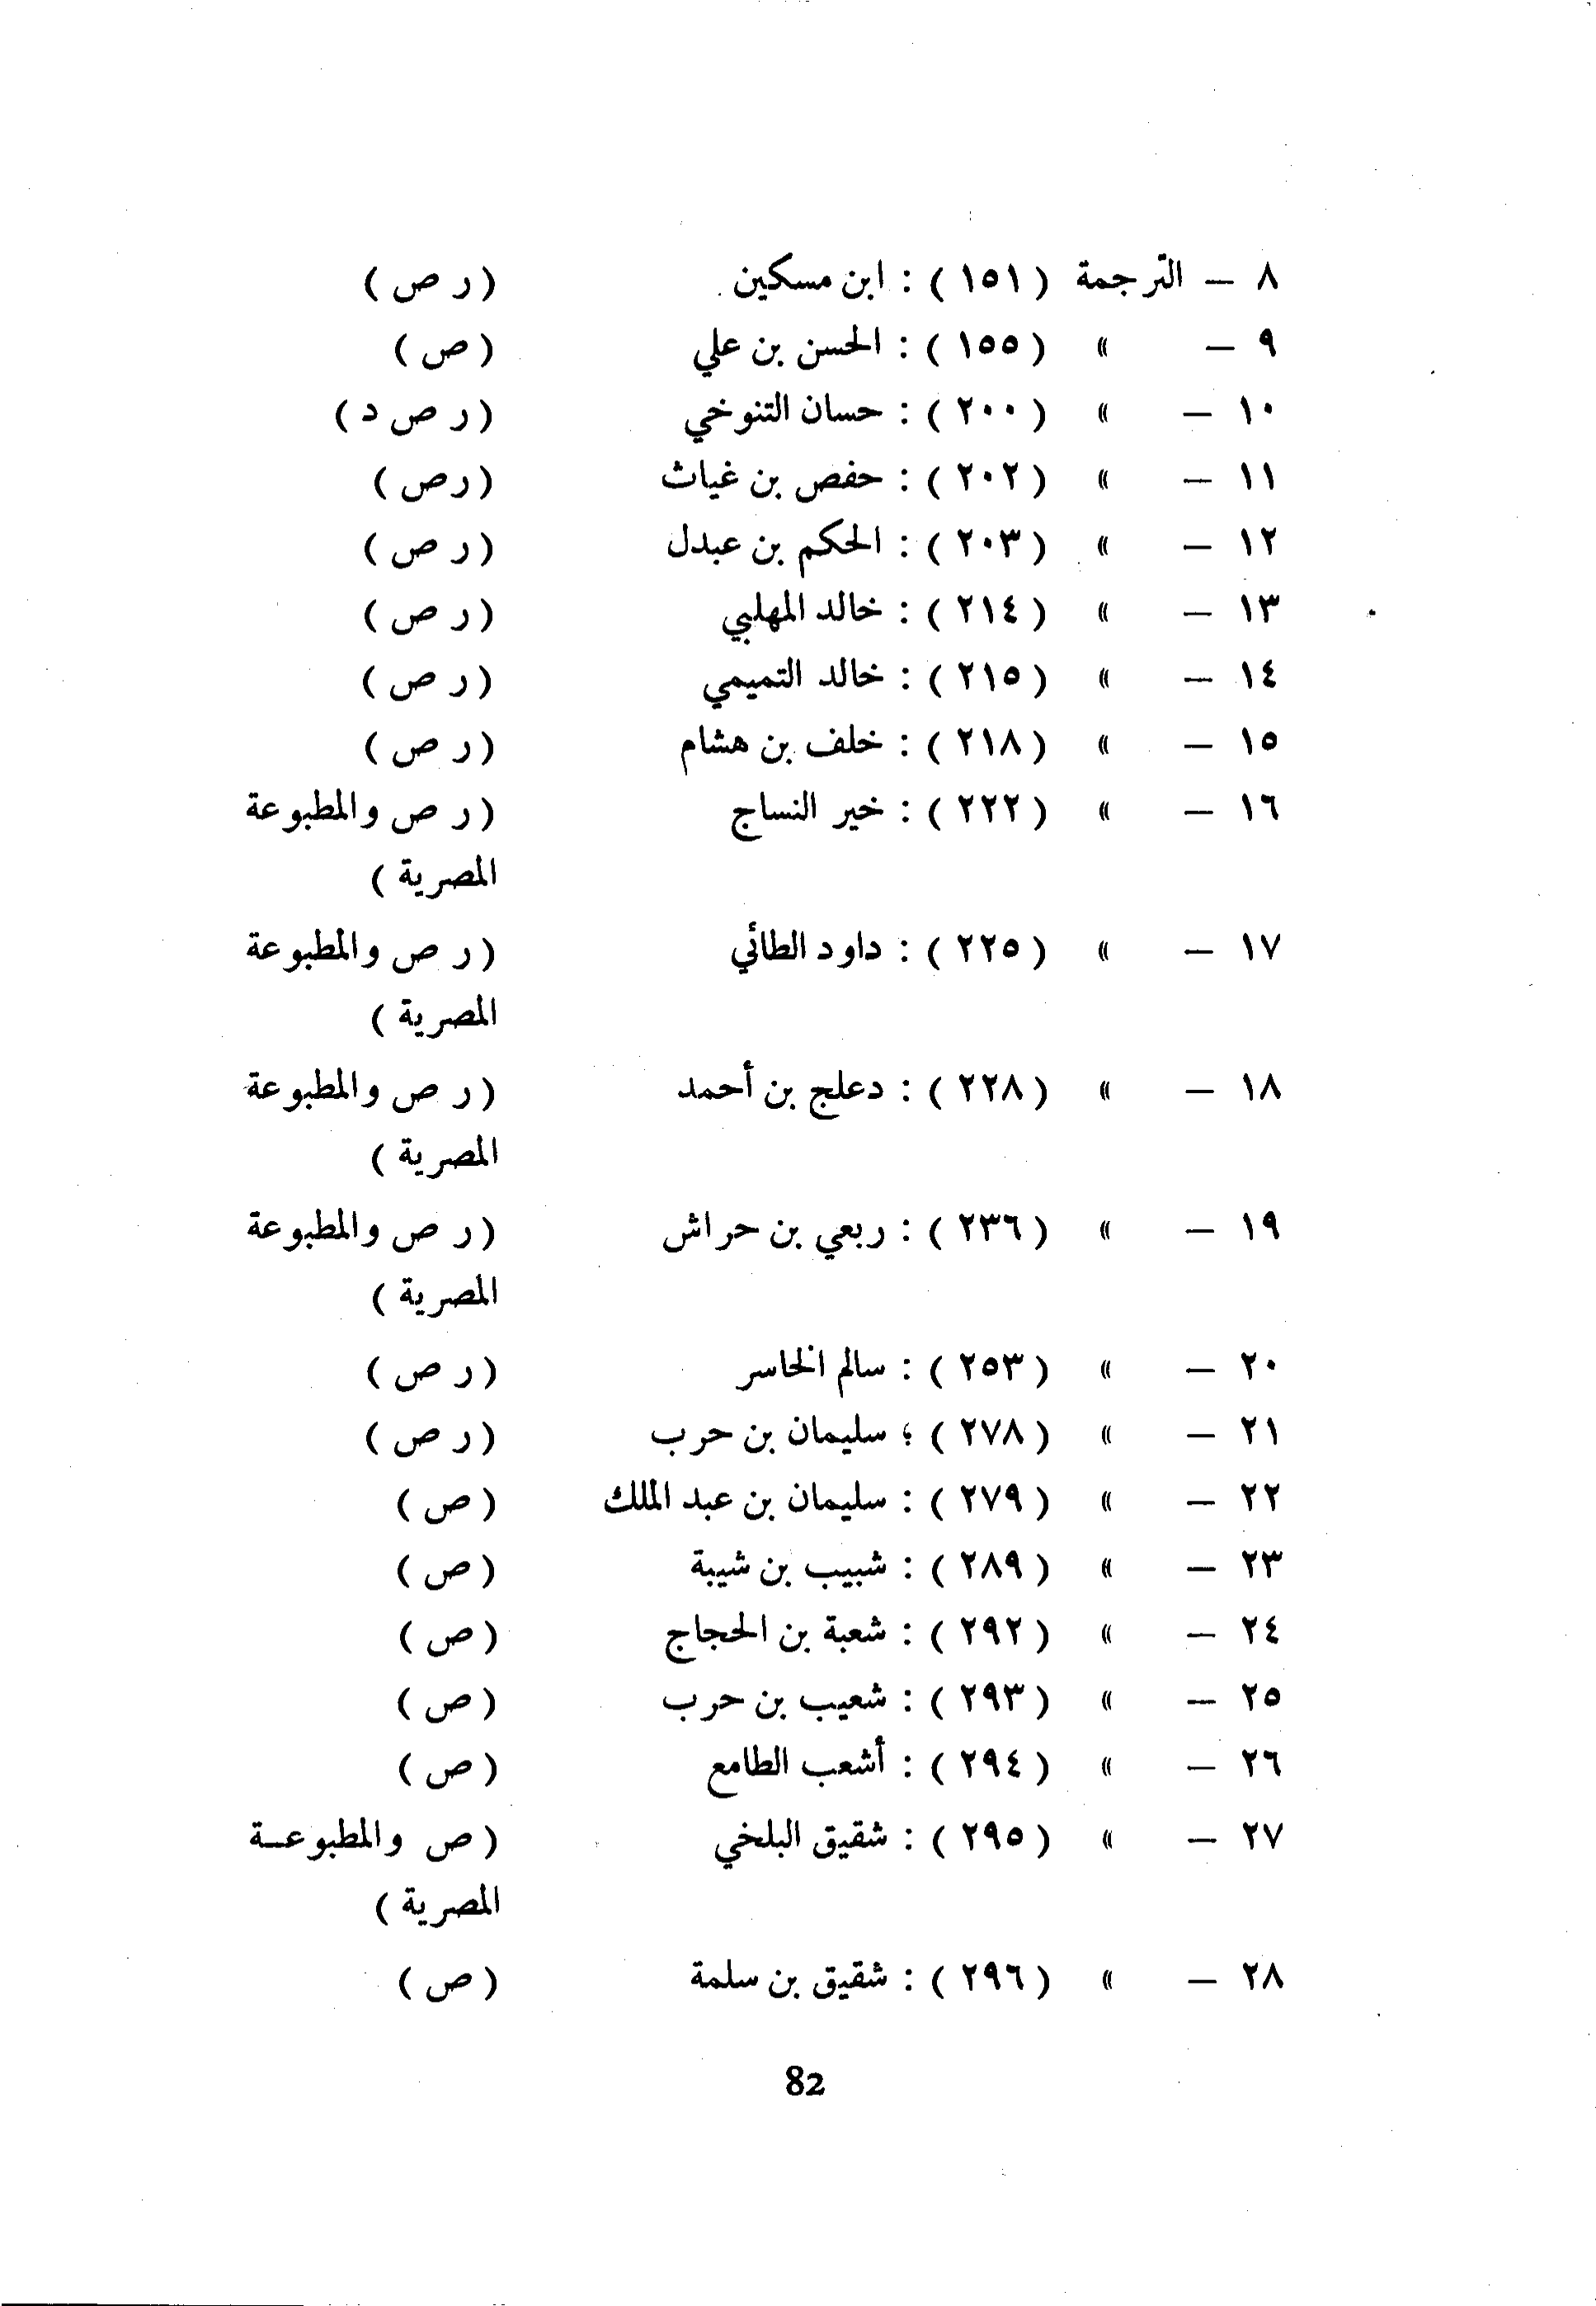 ٨ – الترجمة ( ١٥١ ) : ابن مسكين ( ر ص )
٩ – » ( ١٥٥ ) : الحسن بن علي ( ص )
١٠ – » ( ٢٠٠ ) : حسان التنوخي ( ر ص د )
١١ – » ( ٢٠٢ ) : حفص بن غياث ( ر ص )
١٢ – » ( ٢٠٣ ) : الحكم بن عبدل ( ر ص )
١٣ – » ( ٢١٤ ) : خالد المهلبي ( ر ص )
١٤ – » ( ٢١٥ ) : خالد التميمي ( ر ص )
١٥ – » ( ٢١٨ ) : خلف بن هشام ( ر ص )
١٦ – » ( ٢٢٢ ) : خير النساج ( ر ص والمطبوعة
المصرية )
١٧ – » ( ٢٢٥ ) : داود الطائي ( ر ص والمطبوعة
المصرية )
١٨ – » ( ٢٢٨ ) : دعلج بن أحمد ( ر ص والمطبوعة
المصرية )
١٩ – » ( ٢٣٦ ) : ربعي بن حراش ( ر ص والمطبوعة
المصرية )
٢٠ – » ( ٢٥٣ ) : سالم الخاسر ( ر ص )
٢١ – » ( ٢٧٨ ) ؛ سليمان بن حرب ( ر ص )
٢٢ – » ( ٢٧٩ ) : سليمان بن عبد الملك ( ص )
٢٣ – » ( ٢٨٩ ) : شبيب بن شيبة ( ص )
٢٤ – » ( ٢٩٢ ) : شعبة بن الحجاج ( ص )
٢٥ – » ( ٢٩٣ ) : شعيب بن حرب ( ص )
٢٦ – » ( ٢٩٤ ) : أشعب الطامع ( ص )
٢٧ – » ( ٢٩٥ ) : شقيق البلخي ( ص والمطبوعـة
المصرية )
٢٨ – » ( ٢٩٦ ) : شقيق بن سلمة ( ص )
82